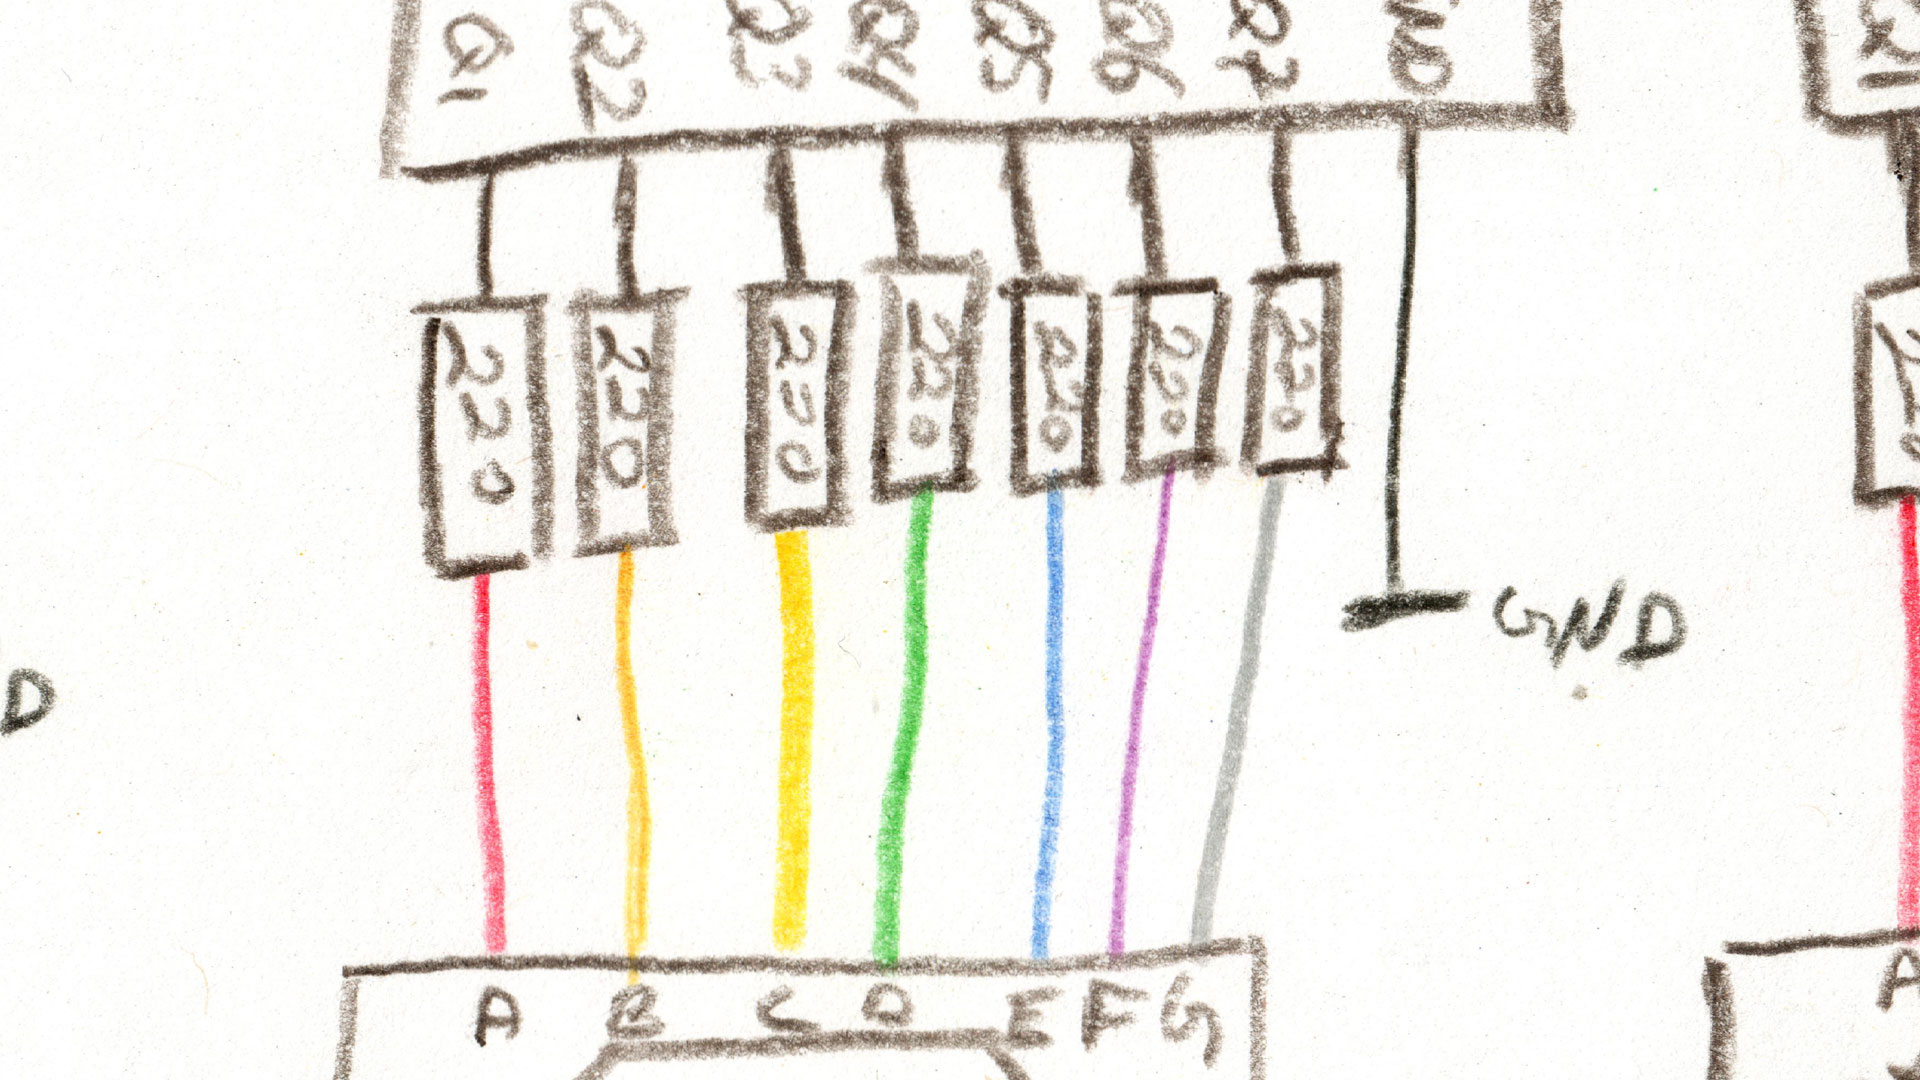 Q1 Q2 Q3 Q4 Q5 Q6 Q7 GND Q1
220 220 220 220 220 220 220 220
GND
D
A B C D E F G A